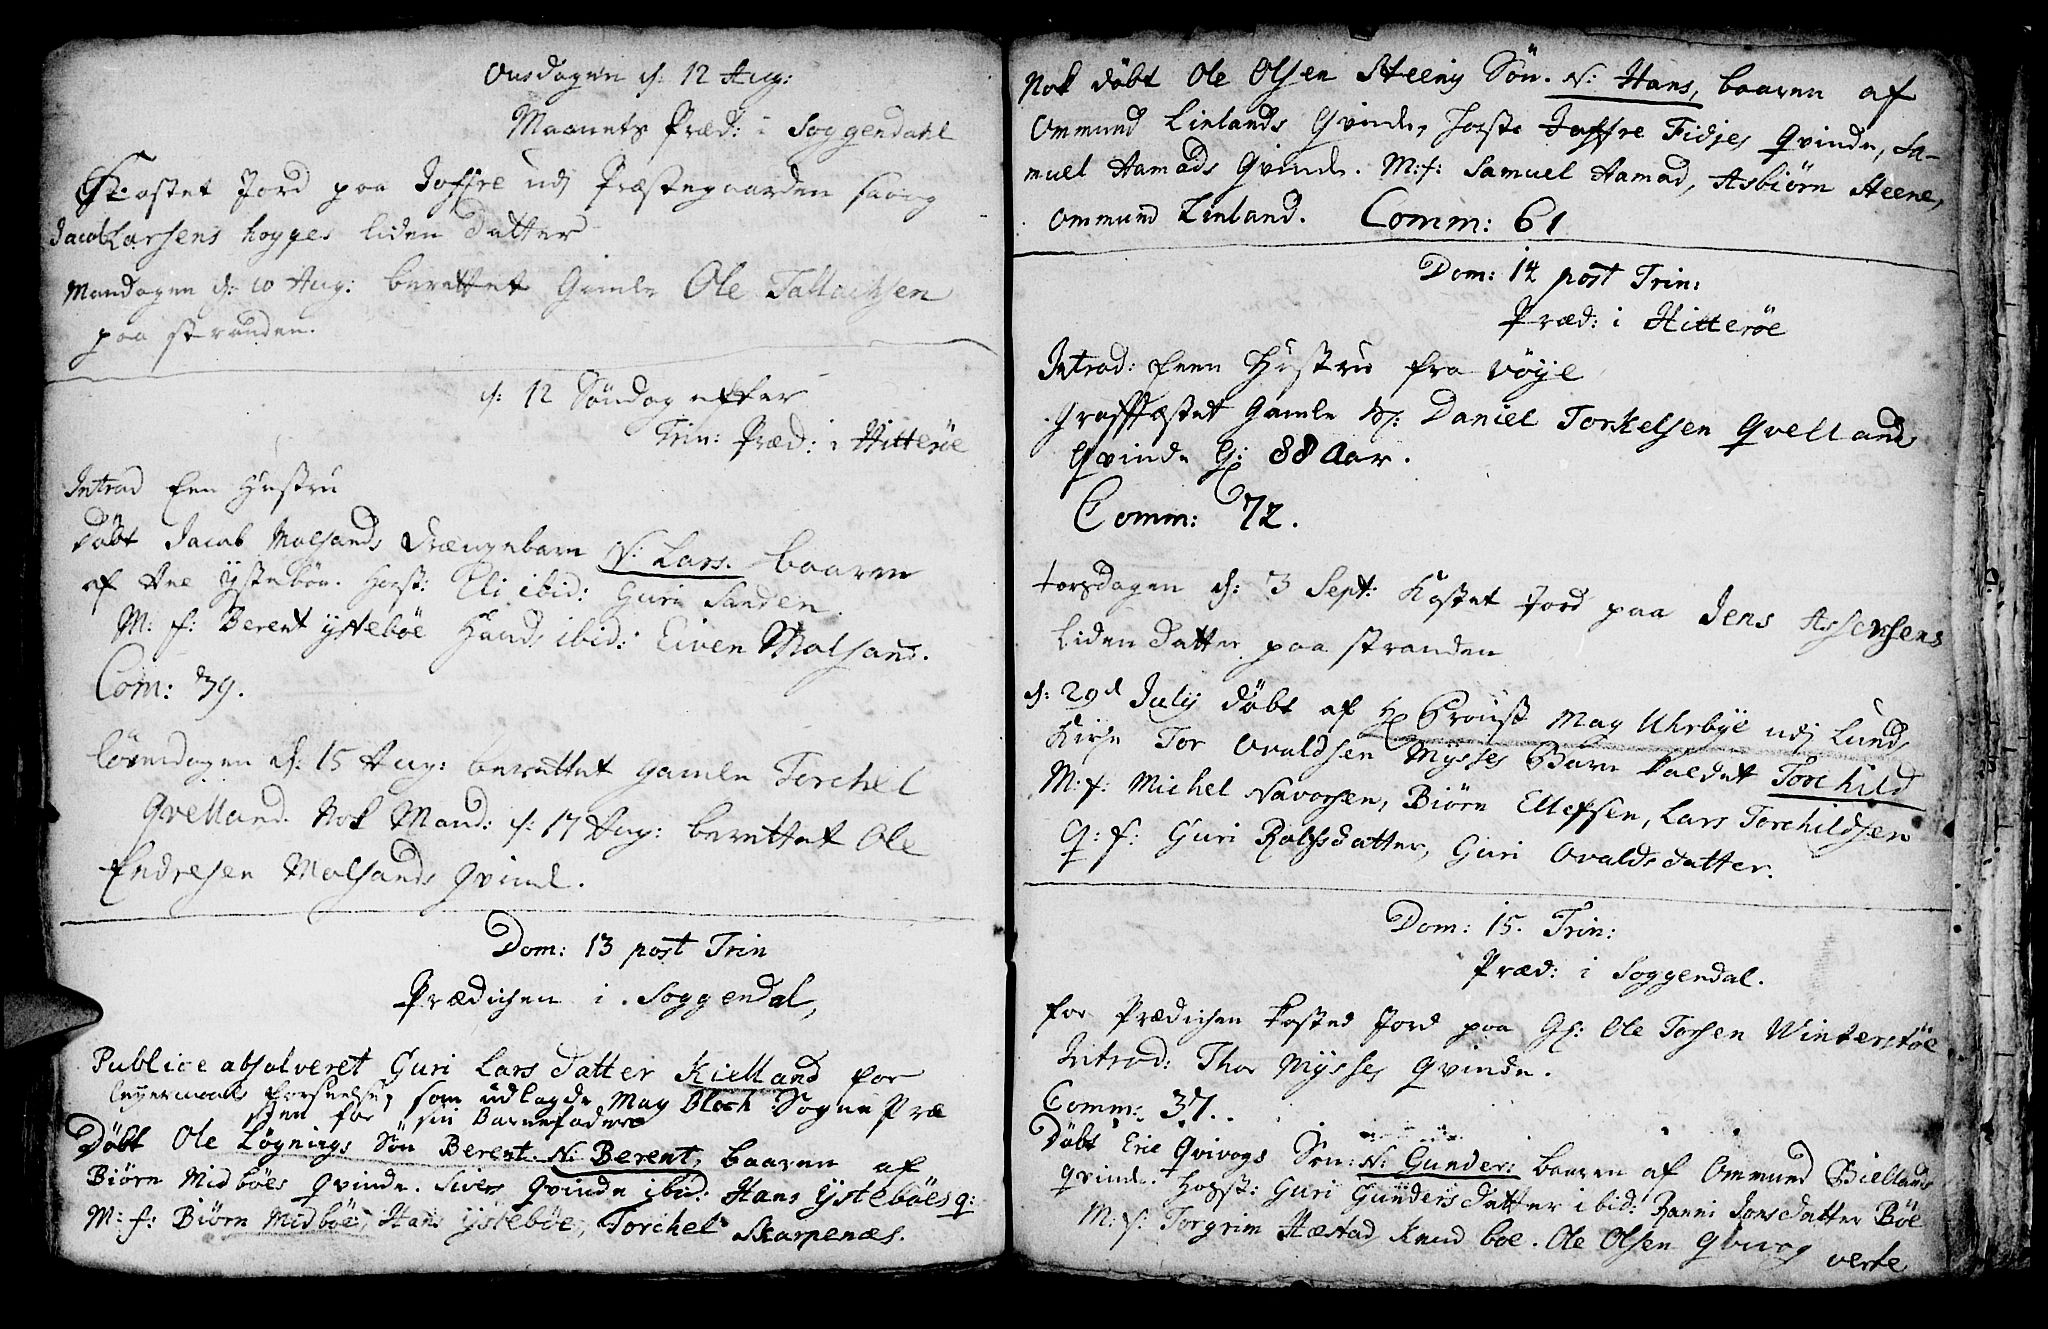 Onsdagen d: 12 Aug:
Maanets Præd: i Soggendahl
Kastet Jord paa Joffre udj Præstegaarden saavog
Jacob Larsens hogges liden datter
Mandagen d: 10 Aug: berettet Gamle Ole Tallachsen
paa stranden.
d: 12 Søndag efter
Trin: Præd: i Hitterøe
Introd Een Hustru
Døbt Jacob Molsands drængebarn N: Lars. baaren
af Ane Ystebøn. Hosst: Eli ibid: Guri Sanden.
M: f: Berent Ystebøe Hands ibid: Eiven Molsand.
Com: 39.
Løverdagen d: 15 Aug: berettet gamle Torchel
Qvelland. Nok Mand: d: 17 Aug: berettet Ole
Endresen Molsands Qvinde.
Dom: 13 post Trin
Prædichen i Soggendal,
Publice absolveret Guri Lars datter Kielland for
leyermaals forseelse, som udlagde Mag Bloch Sogne Præ
sten for sin Barnefader
Døbt Ole Løgnings Søn Berent. N: Berent, baaren af
Biørn Midbøes Qvinde. Sivers Qvinde ibid: Hans Ystebøes q:
M: f: Biørn Midbøe, Hans Ystebøe, Torchel Skarpenæs.
Nok døbt Ole Olsen Steeny Søn. N: Hans, baaren af
Ommund Linlands Qvinde, hoste Joffre Fidjes Qvinde, Sa-
muel Aamods Qvinde. M: f: Samuel Aamod, Asbiørn Steene,
Ommund Linland. Comm: 61
Dom: 14 post Trin:
Præd: i Hitterøe
Introd: Een Hustru fra Vøyle
Graffæstet gamle Daniel Torkelsen Qvelland
Qvinde G: 88 Aar.
Comm: 72.
Torsdagen d: 3 Sept: Kastet Jord paa Jens Assersens
liden datter paa stranden
d: 29d July døbt af H: Proust Mag Uhrbye udj Lund
Kirke Tor Ovaldsen Mysses Barn kaldet Torchild
M: f: Michel Navarsen, Biørn Ellefsen, Lars Torchildsen
Q: f: Guri Rolfsdatter, Guri Ovaldsdatter.
Dom: 15. Trin:
Præd: i Soggendal.
for Prædichen kasted Jord paa Gl: Ole Torsen Winterstøe
Introd: Thor Mysses Qvinde.
Comm: 37.
Døbt Eric Qvivogs Søn: N: Gunder: baaren af Ommund Biellands
qvinde. Hosst: Guri Gunders datter ibid: Ranni Jonsdatter Bøe
M: f: Torgrim Hæstad Knud boe. Ole Olsen Qvivog
verte